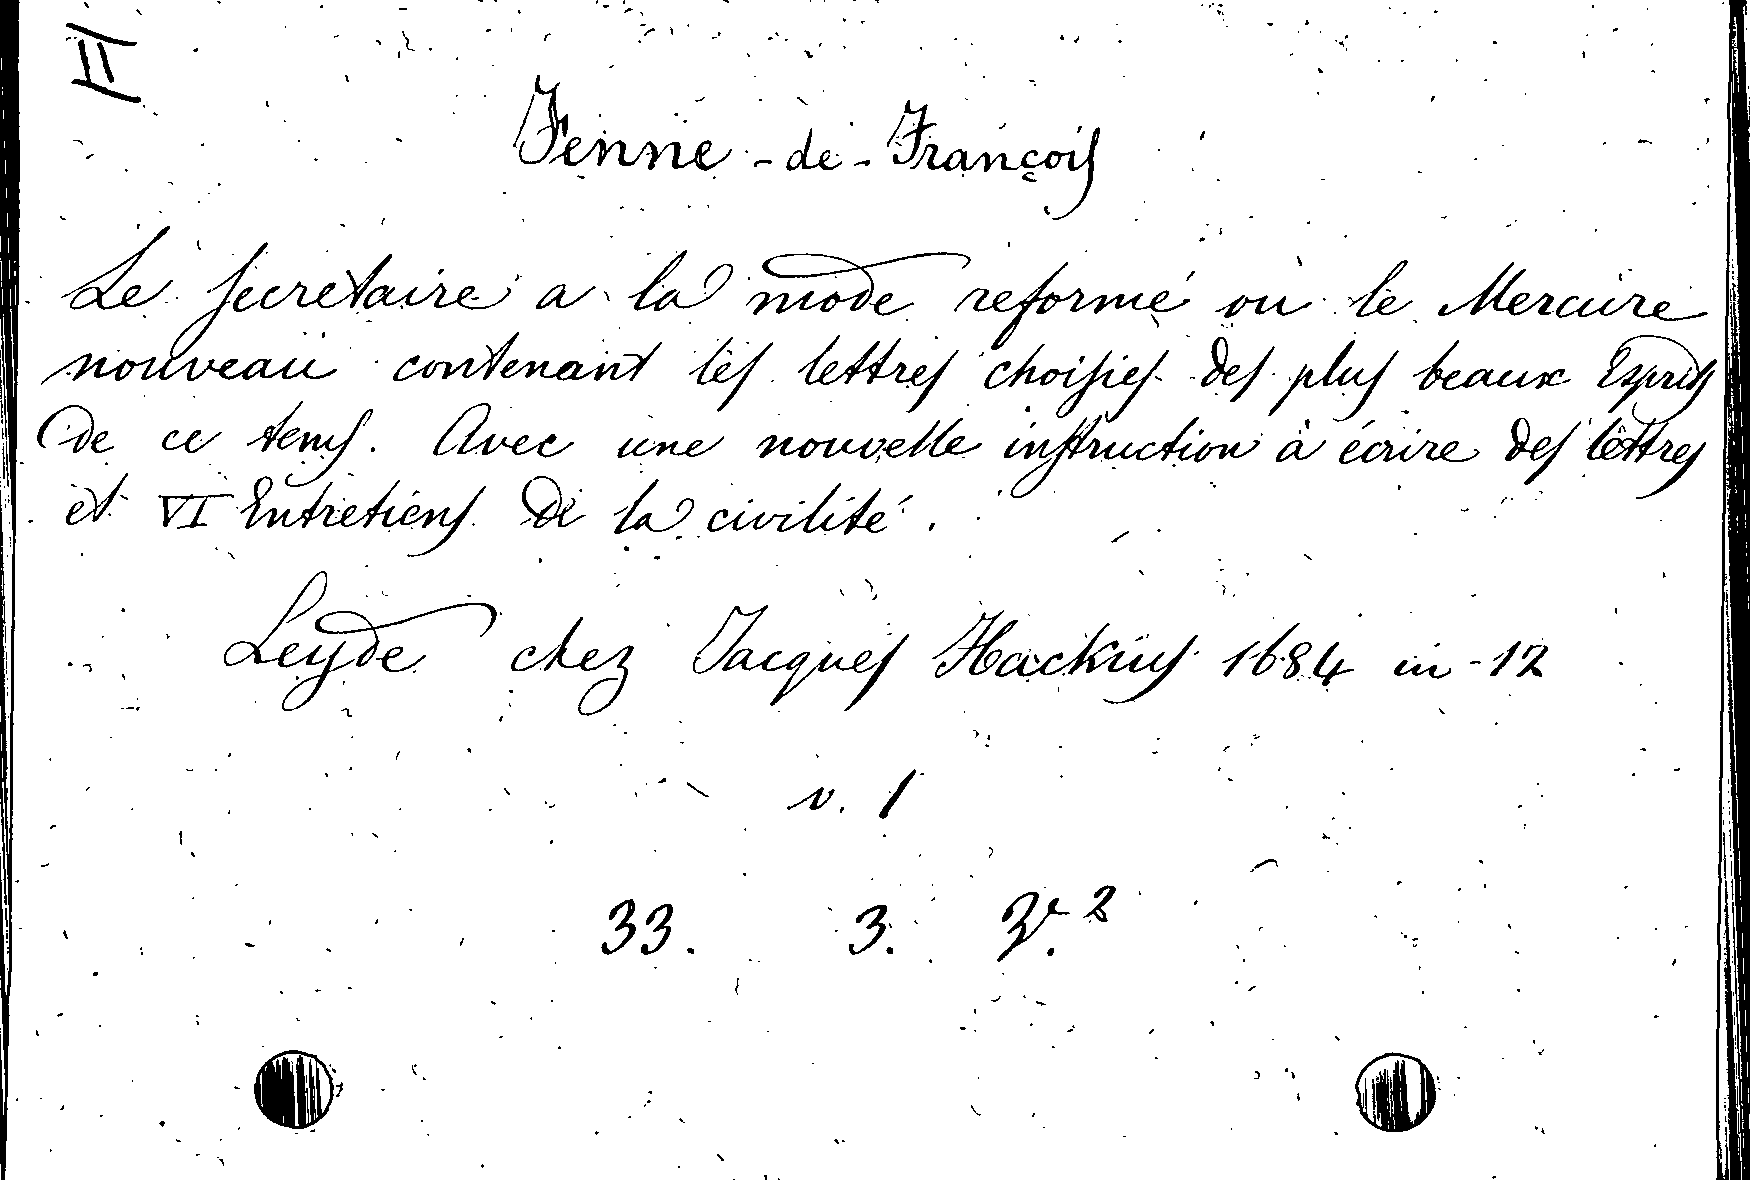 H
Fenne - de - François
Le secretaire a la mode reformé ou le Mercure
nouveau contenant les lettres choisies des plus beaux Esprits
de ce tems. Avec une nouvelle instruction à écrire des lettres
et VI Entretiens de la civilité.
Leyde chez Jacques Hackius 1684 in-12
v. 1
33. 3.